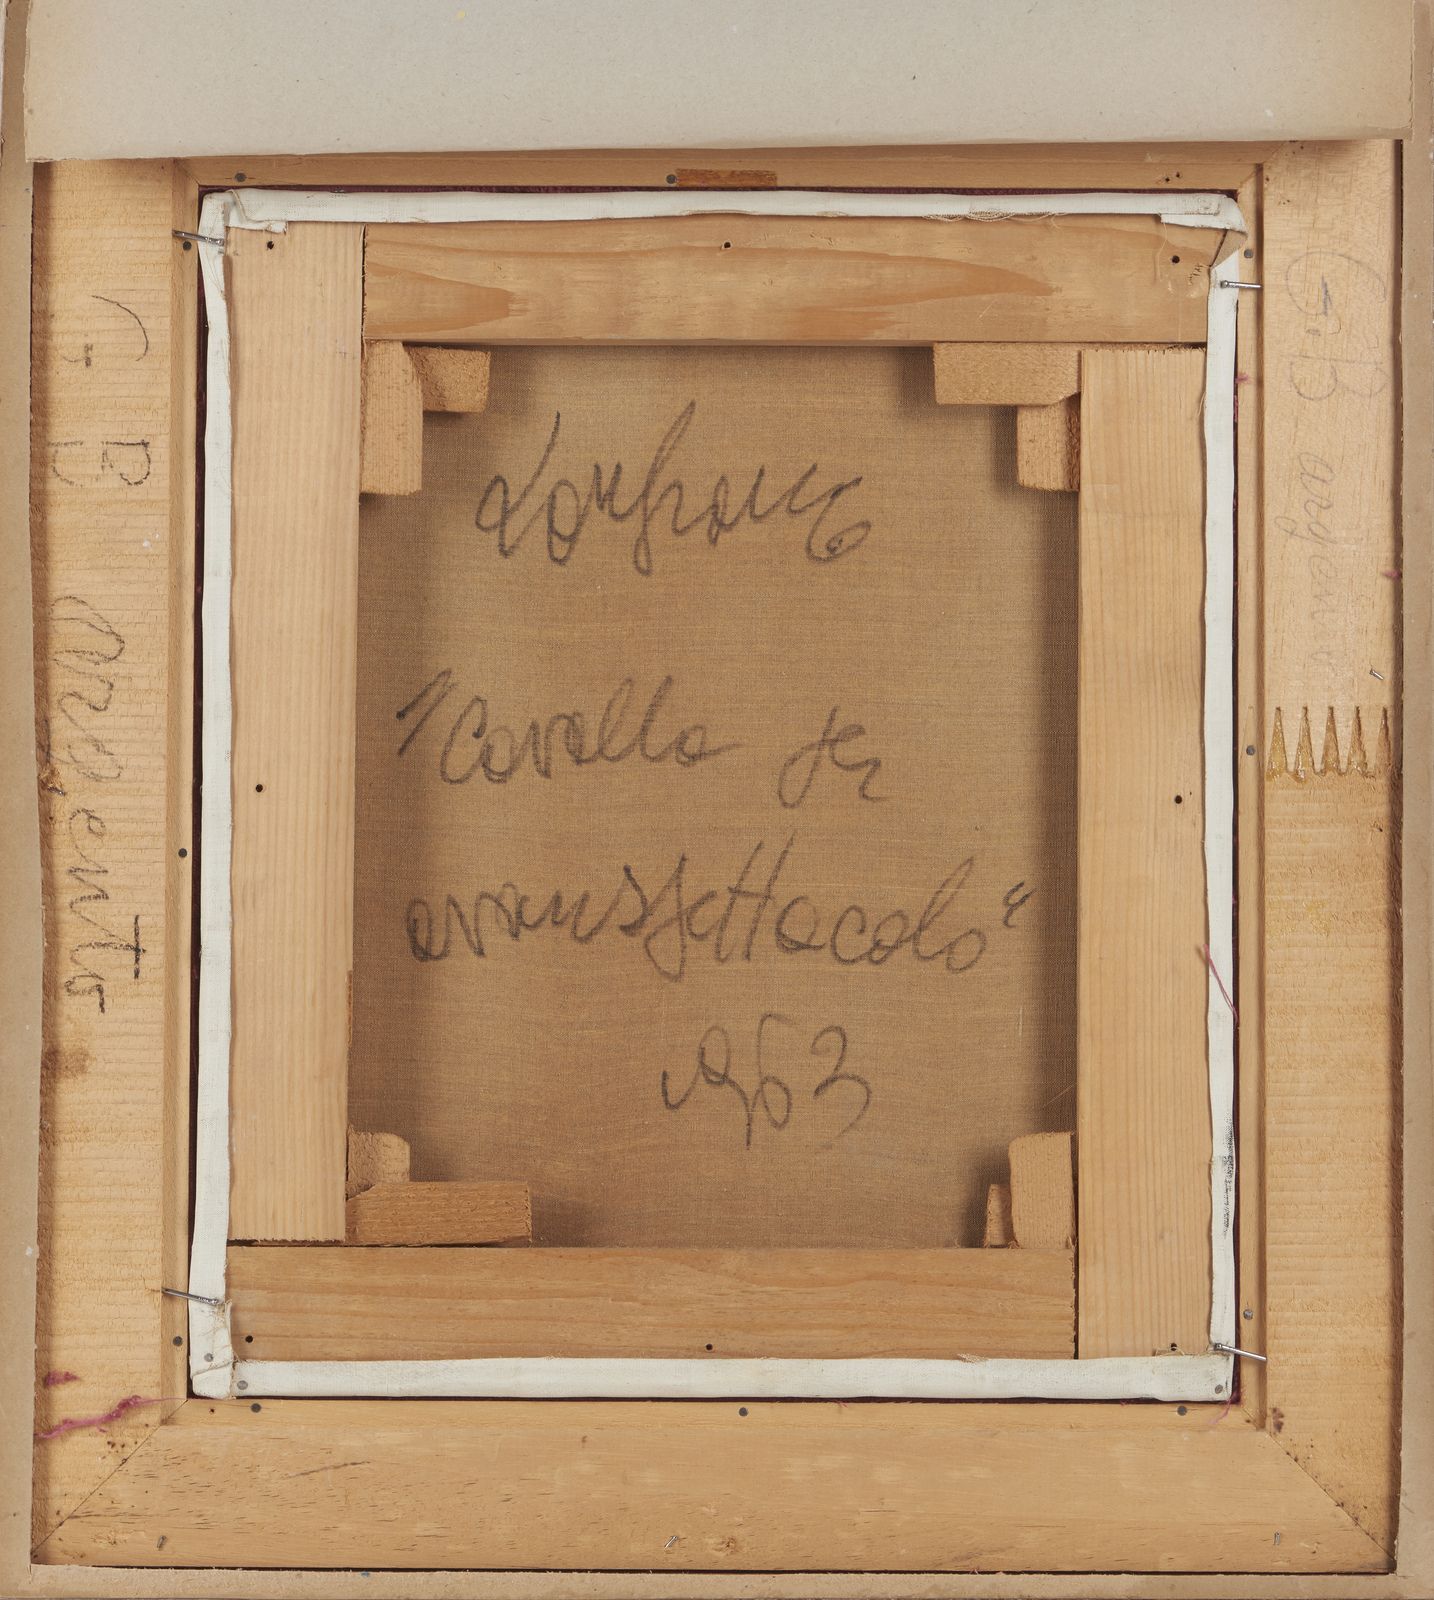 Lanfranco
"Cavallo da
avanspettacolo"
1963
G. B. argento
G B argento